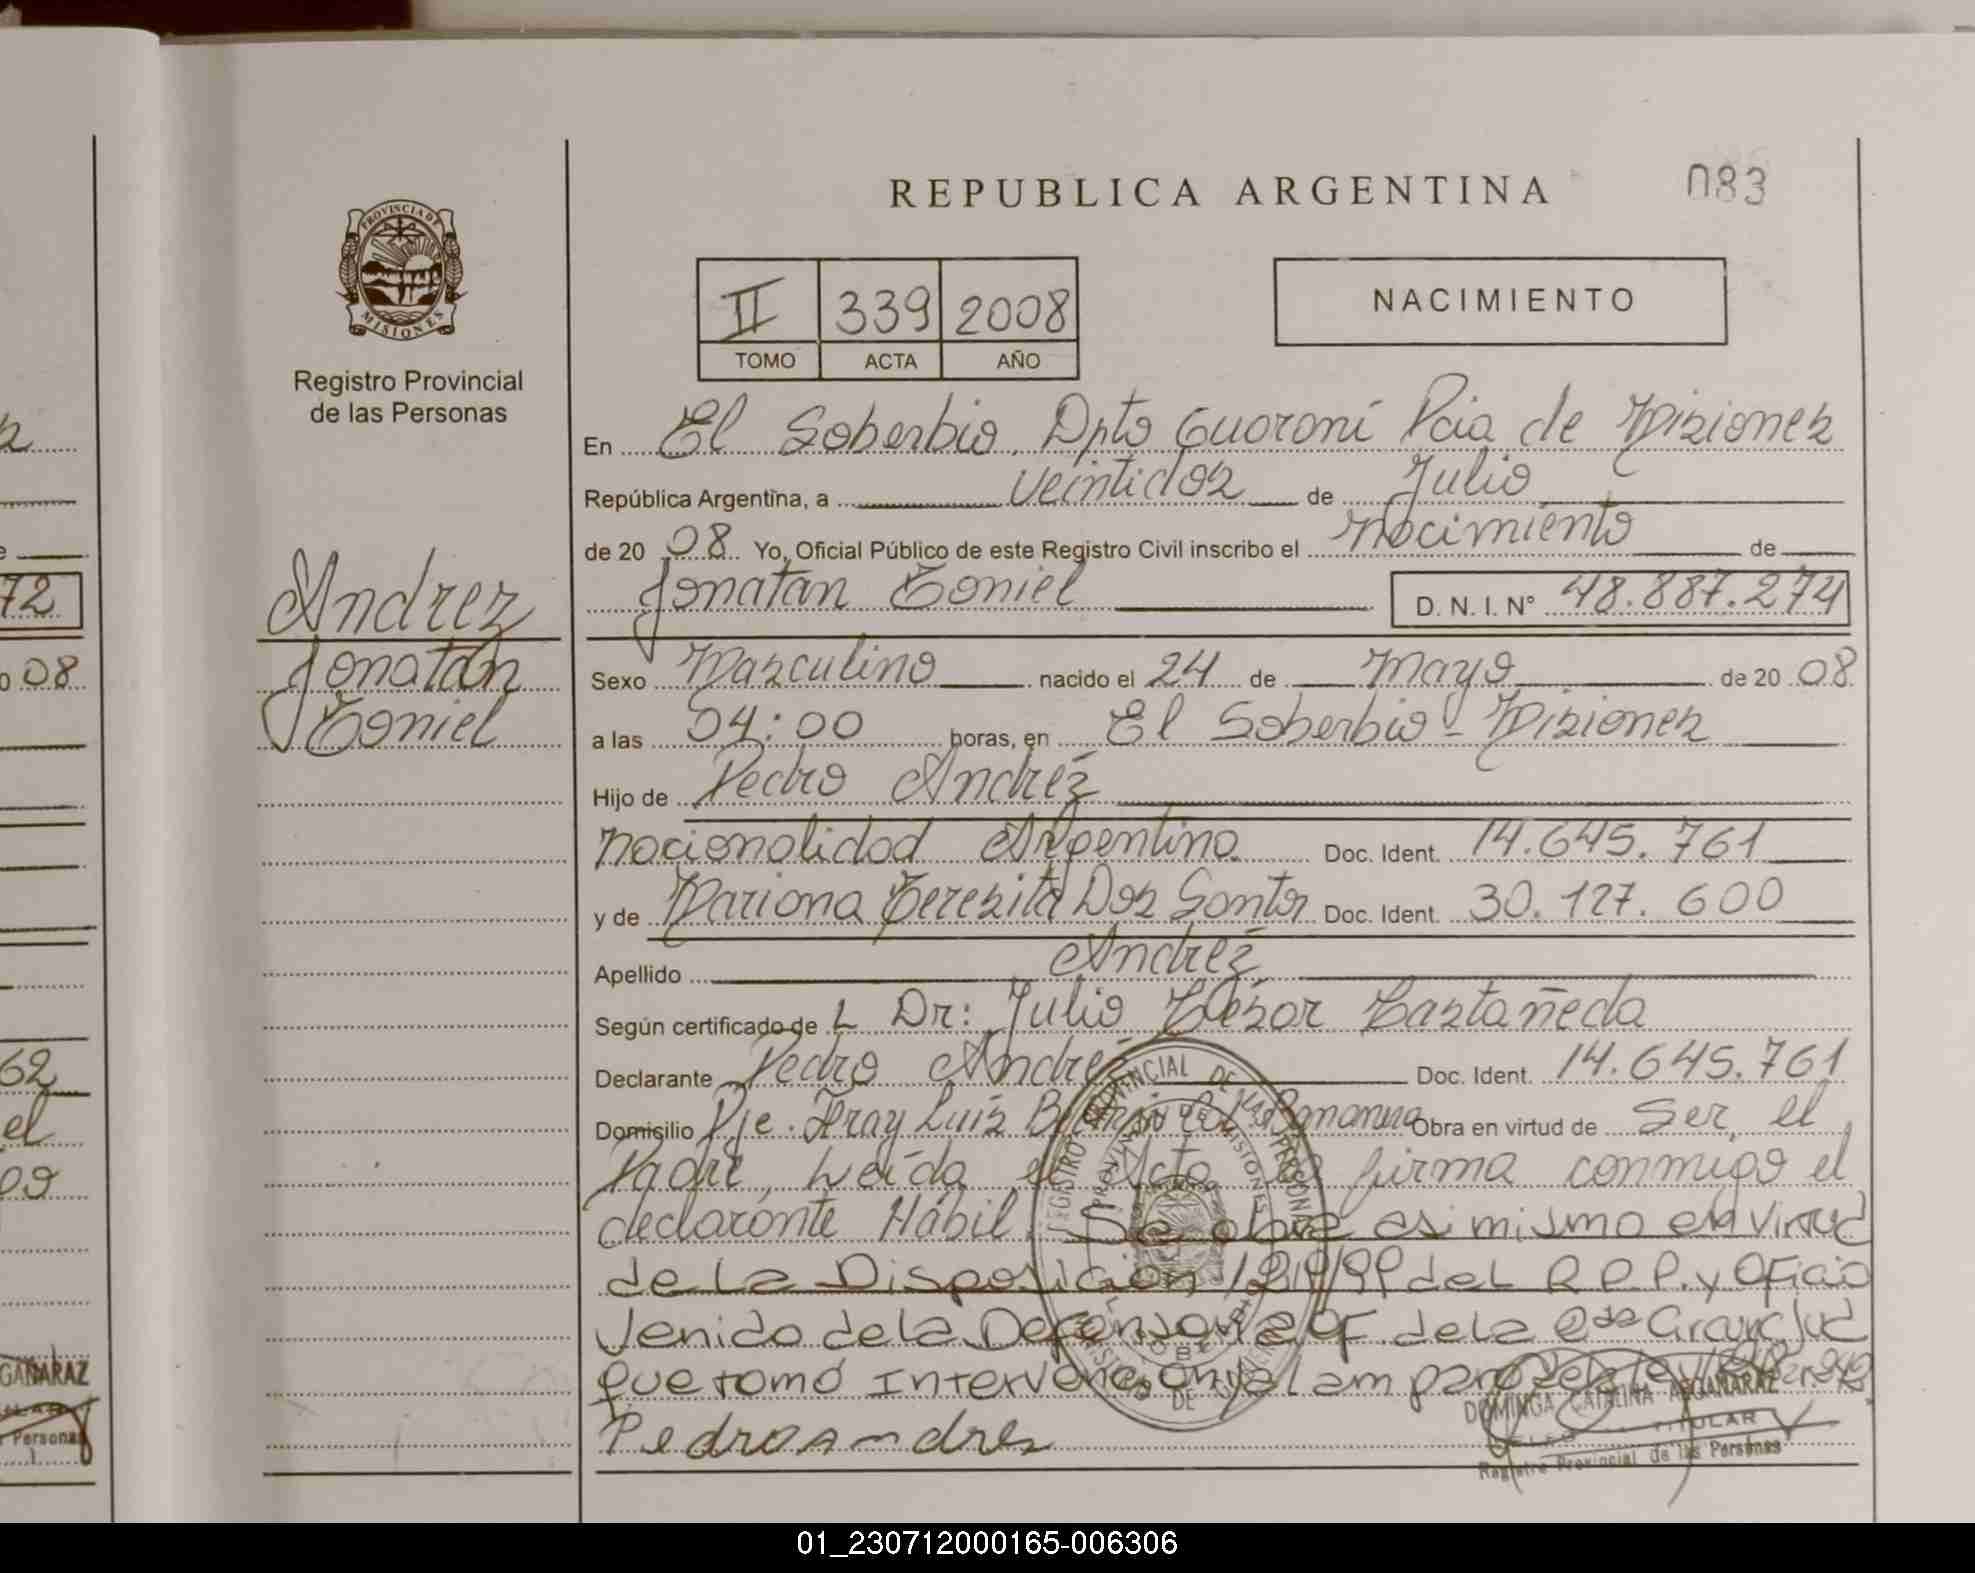 REPUBLICA ARGENTINA
083
PROVINCIA DE
MISIONES
Registro Provincial
de las Personas
II 339 2008
TOMO ACTA AÑO
NACIMIENTO
En El Soberbio, Dpto Guaraní Pcia de Misiones
República Argentina, a veintidos de Julio
de 20 08 Yo, Oficial Público de este Registro Civil inscribo el nacimiento de
Jonatan Toniel D. N. I. N° 48.887.274
Andrez
Jonatan
Toniel
Sexo Masculino nacido el 24 de Mayo de 20 08
a las 04:00 horas, en El Soberbio - Misiones
Hijo de Pedro Andréz
nacionalidad Argentina Doc. Ident. 14.645.761
y de Mariana Terezita Dos Santos Doc. Ident. 30.127.600
Apellido Andréz
Según certificado de L Dr: Julio César Castañeda
Declarante Pedro Andréz Doc. Ident. 14.645.761
Domicilio Pje. Fray Luis Obra en virtud de Ser, el
Padre, Leída el Acta la firma conmigo el
declarante Hábil. Se obra asi mismo en virtud
de la Disposicion del R.P.P. y Oficio
Venido de la Defensoria Of de la
que tomó Intervencion
Pedro andres
DOMINGA CATALINA ARGAÑARAZ
TITULAR
Registro Provincial de las Personas
72
08
62
el
GAÑARAZ
Personas
01_230712000165-006306